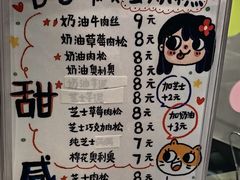 奶油牛肉丝 9元
奶油草莓肉松 8元
奶油肉松 8元
奶油奥利奥 8元
甜
芝士草莓肉松 8元
芝士巧克力肉松 8元
纯芝士 7元
棉花奥利奥 7元
咸
芝士肉松 8元
加芝士
+2元
加奶油
+3元